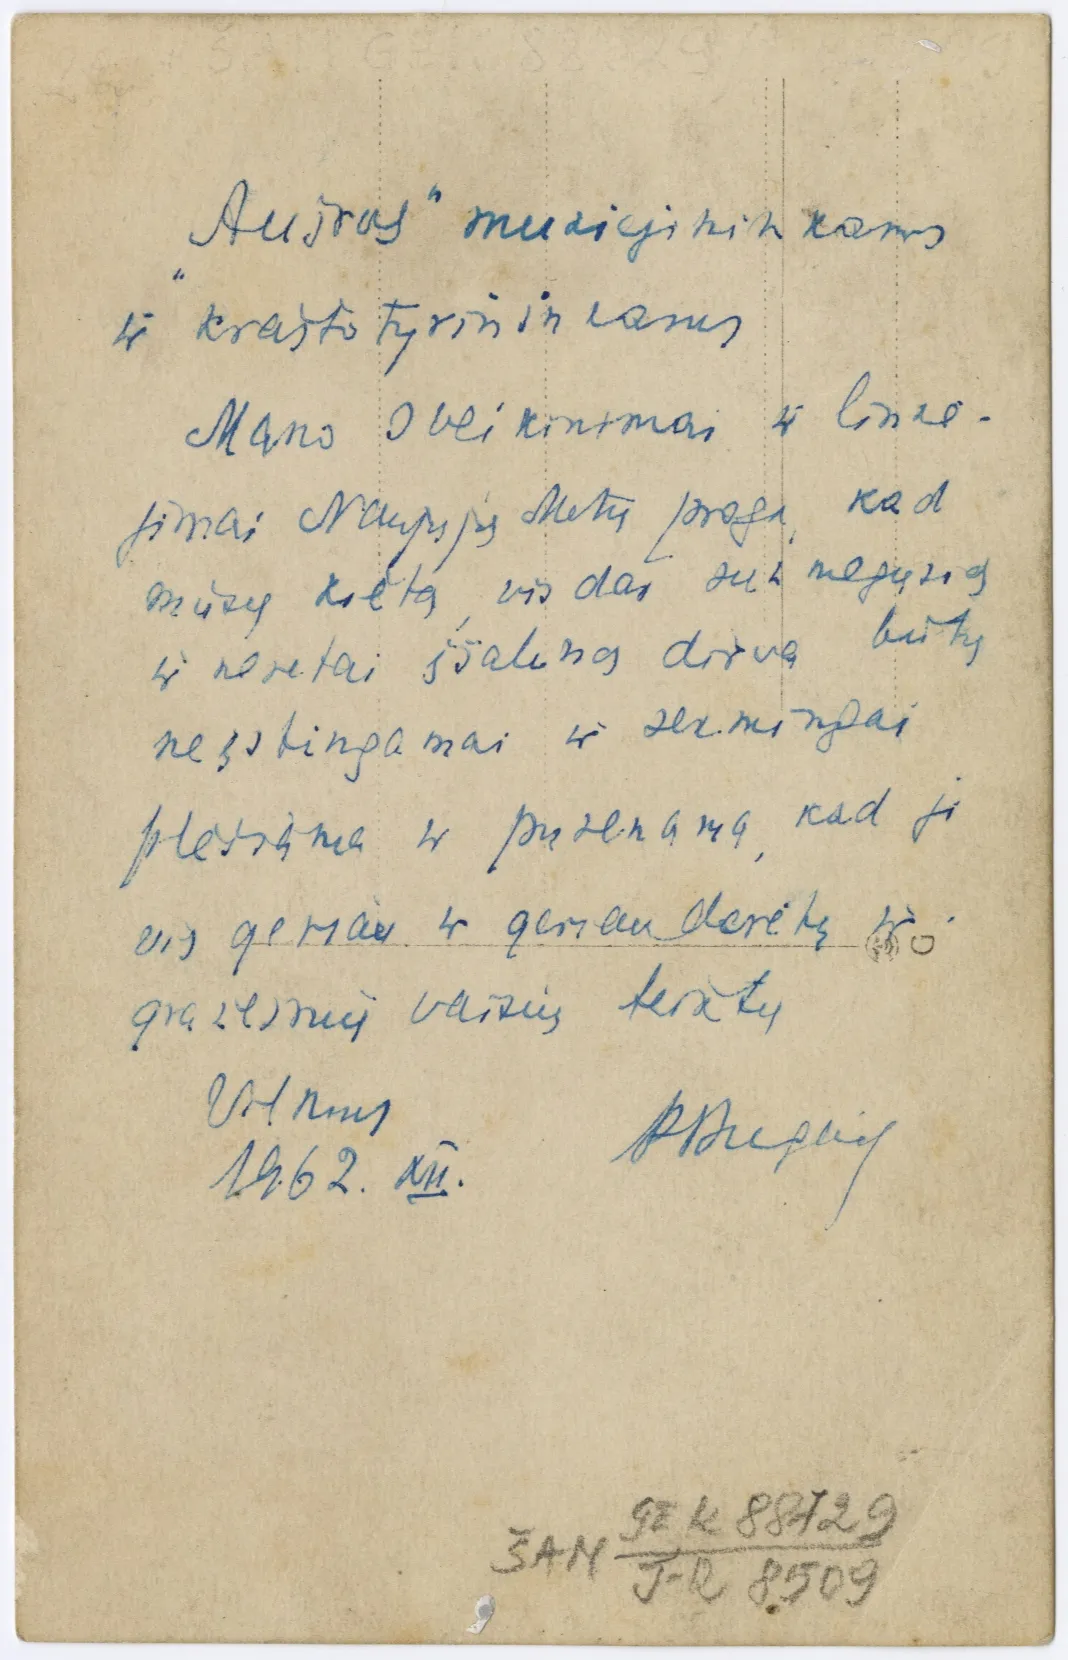 „Aušros“ muziejininkams
ir kraštotyrininkams
Mano sveikinimai ir linkė-
jimai Naujųjų Metų proga, kad
mūsų kieta, vis dar
ir neretai įšalusa dirva būtų
nesustingamai ir sėkmingai
plėšiama ir purenama, kad ji
vis geriau ir geriau derėtų ir
gražesnių vaisių teiktų
Vilnius
1962. XII.
ŠAM GEK 88729
I-R 8509